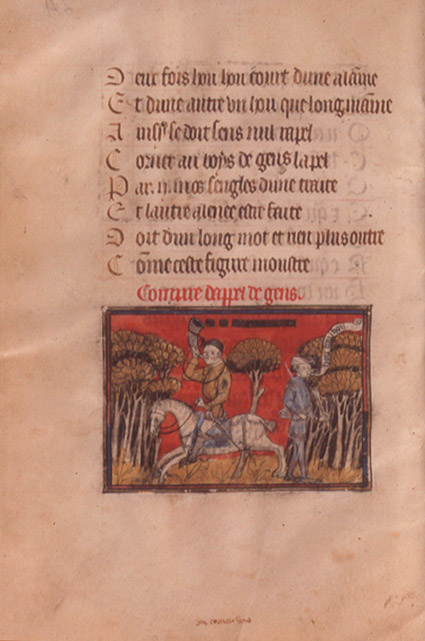 D eux fois hou hou court dune alaine
E t dune autre un hou que long maine
A inssy se doit sens nul rapel
C orner au boys de gens lapel
P ar mos sengles dune traite
E t lautre alence estre faite
D oit dun long mot et rien plus outre
C ome ceste figure moustre
Cornure dappel de gens.